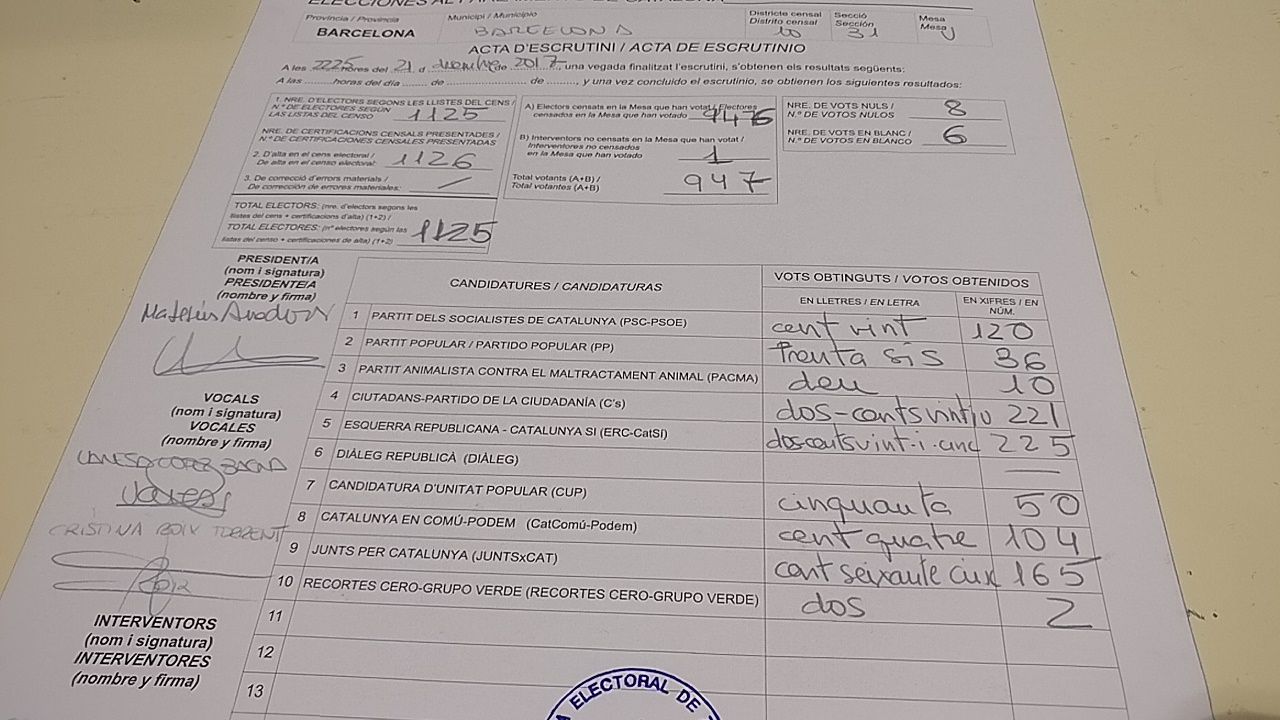 ELECCIONES AL PARLAMENTO DE CATALUÑA
Província / Provincia
Municipi / Municipio
Districte censal
Distrito censal
Secció
Sección
Mesa
Mesa
BARCELONA
BARCELONA
10
31
U
ACTA D'ESCRUTINI / ACTA DE ESCRUTINIO
A les 2225 hores del 21 d desembre de 2017, una vegada finalitzat l'escrutini, s'obtenen els resultats següents:
A las ........ horas del día ........ de ........ de ........ y una vez concluido el escrutinio, se obtienen los siguientes resultados:
1. NRE. D'ELECTORS SEGONS LES LLISTES DEL CENS /
N.º DE ELECTORES SEGÚN
LAS LISTAS DEL CENSO
1125
NRE. DE CERTIFICACIONS CENSALS PRESENTADES /
N.º DE CERTIFICACIONES CENSALES PRESENTADAS
2. D'alta en el cens electoral /
De alta en el censo electoral:
1126
3. De correcció d'errors materials /
De corrección de errores materiales:
TOTAL ELECTORS: (nre. d'electors segons les
llistes del cens + certificacions d'alta) (1+2) /
TOTAL ELECTORES: (nº electores según las
listas del censo + certificaciones de alta) (1+2)
1125
A) Electors censats en la Mesa que han votat / Electores
censados en la Mesa que han votado
B) Interventors no censats en la Mesa que han votat /
Interventores no censados
en la Mesa que han votado
1
Total votants (A+B) /
Total votantes (A+B)
947
NRE. DE VOTS NULS /
N.º DE VOTOS NULOS
8
NRE. DE VOTS EN BLANC /
N.º DE VOTOS EN BLANCO
6
PRESIDENT/A
(nom i signatura)
PRESIDENTE/A
(nombre y firma)
VOCALS
(nom i signatura)
VOCALES
(nombre y firma)
CRISTINA BOIX TORRENT
INTERVENTORS
(nom i signatura)
INTERVENTORES
(nombre y firma)
CANDIDATURES / CANDIDATURAS
VOTS OBTINGUTS / VOTOS OBTENIDOS
EN LLETRES / EN LETRA
EN XIFRES / EN
NÚM.
1 PARTIT DELS SOCIALISTES DE CATALUNYA (PSC-PSOE) cent vint 120
2 PARTIT POPULAR / PARTIDO POPULAR (PP) trenta sis 36
3 PARTIT ANIMALISTA CONTRA EL MALTRACTAMENT ANIMAL (PACMA) deu 10
4 CIUTADANS-PARTIDO DE LA CIUDADANÍA (C's) dos-cents vint i u 221
5 ESQUERRA REPUBLICANA - CATALUNYA SI (ERC-CatSI) dos-cents vint-i-cinc 225
6 DIÀLEG REPUBLICÀ (DIÀLEG) —
7 CANDIDATURA D'UNITAT POPULAR (CUP) cinquanta 50
8 CATALUNYA EN COMÚ-PODEM (CatComú-Podem) cent quatre 104
9 JUNTS PER CATALUNYA (JUNTSxCAT) cent seixanta cinc 165
10 RECORTES CERO-GRUPO VERDE (RECORTES CERO-GRUPO VERDE) dos 2
11
12
13
ELECTORAL DE